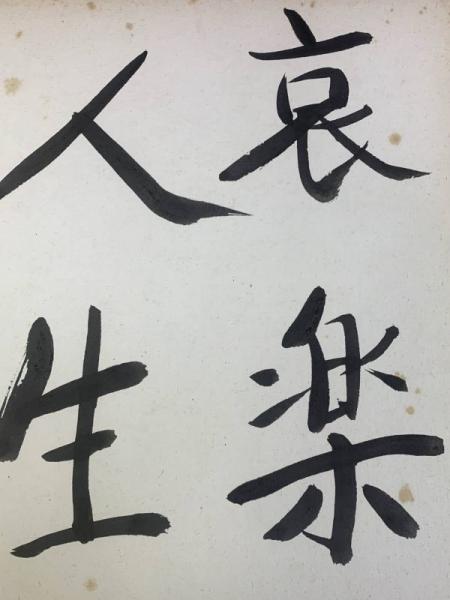 哀楽
人生